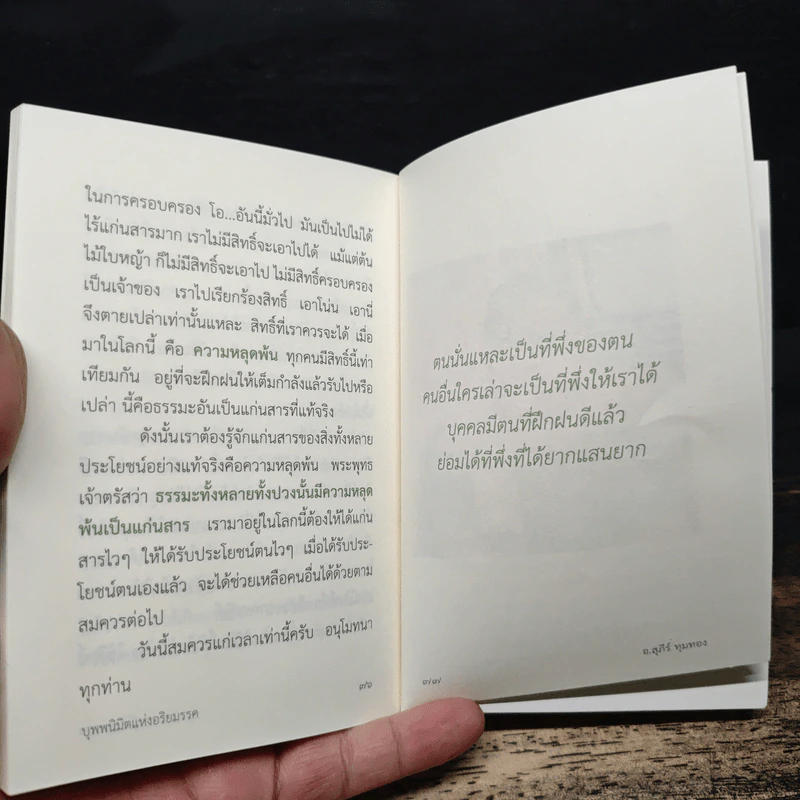 ในการครอบครอง โอ...อันนี้มั่วไป มันเป็นไปไม่ได้
ไร้แก่นสารมาก เราไม่มีสิทธิ์จะเอาไปได้ แม้แต่ต้น
ไม้ใบหญ้า ก็ไม่มีสิทธิ์จะเอาไป ไม่มีสิทธิ์ครอบครอง
เป็นเจ้าของ เราไปเรียกร้องสิทธิ์ เอาโน่น เอานี่
จึงตายเปล่าเท่านั้นแหละ สิทธิ์ที่เราควรจะได้ เมื่อ
มาในโลกนี้ คือ ความหลุดพ้น ทุกคนมีสิทธิ์นี้เท่า
เทียมกัน อยู่ที่จะฝึกฝนให้เต็มกำลังแล้วรับไปหรือ
เปล่า นี้คือธรรมะอันเป็นแก่นสารที่แท้จริง
ดังนั้นเราต้องรู้จักแก่นสารของสิ่งทั้งหลาย
ประโยชน์อย่างแท้จริงคือความหลุดพ้น พระพุทธ
เจ้าตรัสว่า ธรรมะทั้งหลายทั้งปวงนั้นมีความหลุด
พ้นเป็นแก่นสาร เรามาอยู่ในโลกนี้ต้องให้ได้แก่น
สารไวๆ ให้ได้รับประโยชน์ตนไวๆ เมื่อได้รับประ-
โยชน์ตนเองแล้ว จะได้ช่วยเหลือคนอื่นได้ด้วยตาม
สมควรต่อไป
วันนี้สมควรแก่เวลาเท่านี้ครับ อนุโมทนา
ทุกท่าน
๓๖
บุพพนิมิตแห่งอริยมรรค
ตนนั่นแหละเป็นที่พึ่งของตน
คนอื่นใครเล่าจะเป็นที่พึ่งให้เราได้
บุคคลมีตนที่ฝึกฝนดีแล้ว
ย่อมได้ที่พึ่งที่ได้ยากแสนยาก
๓๗
อ.สุภีร์ ทุมทอง